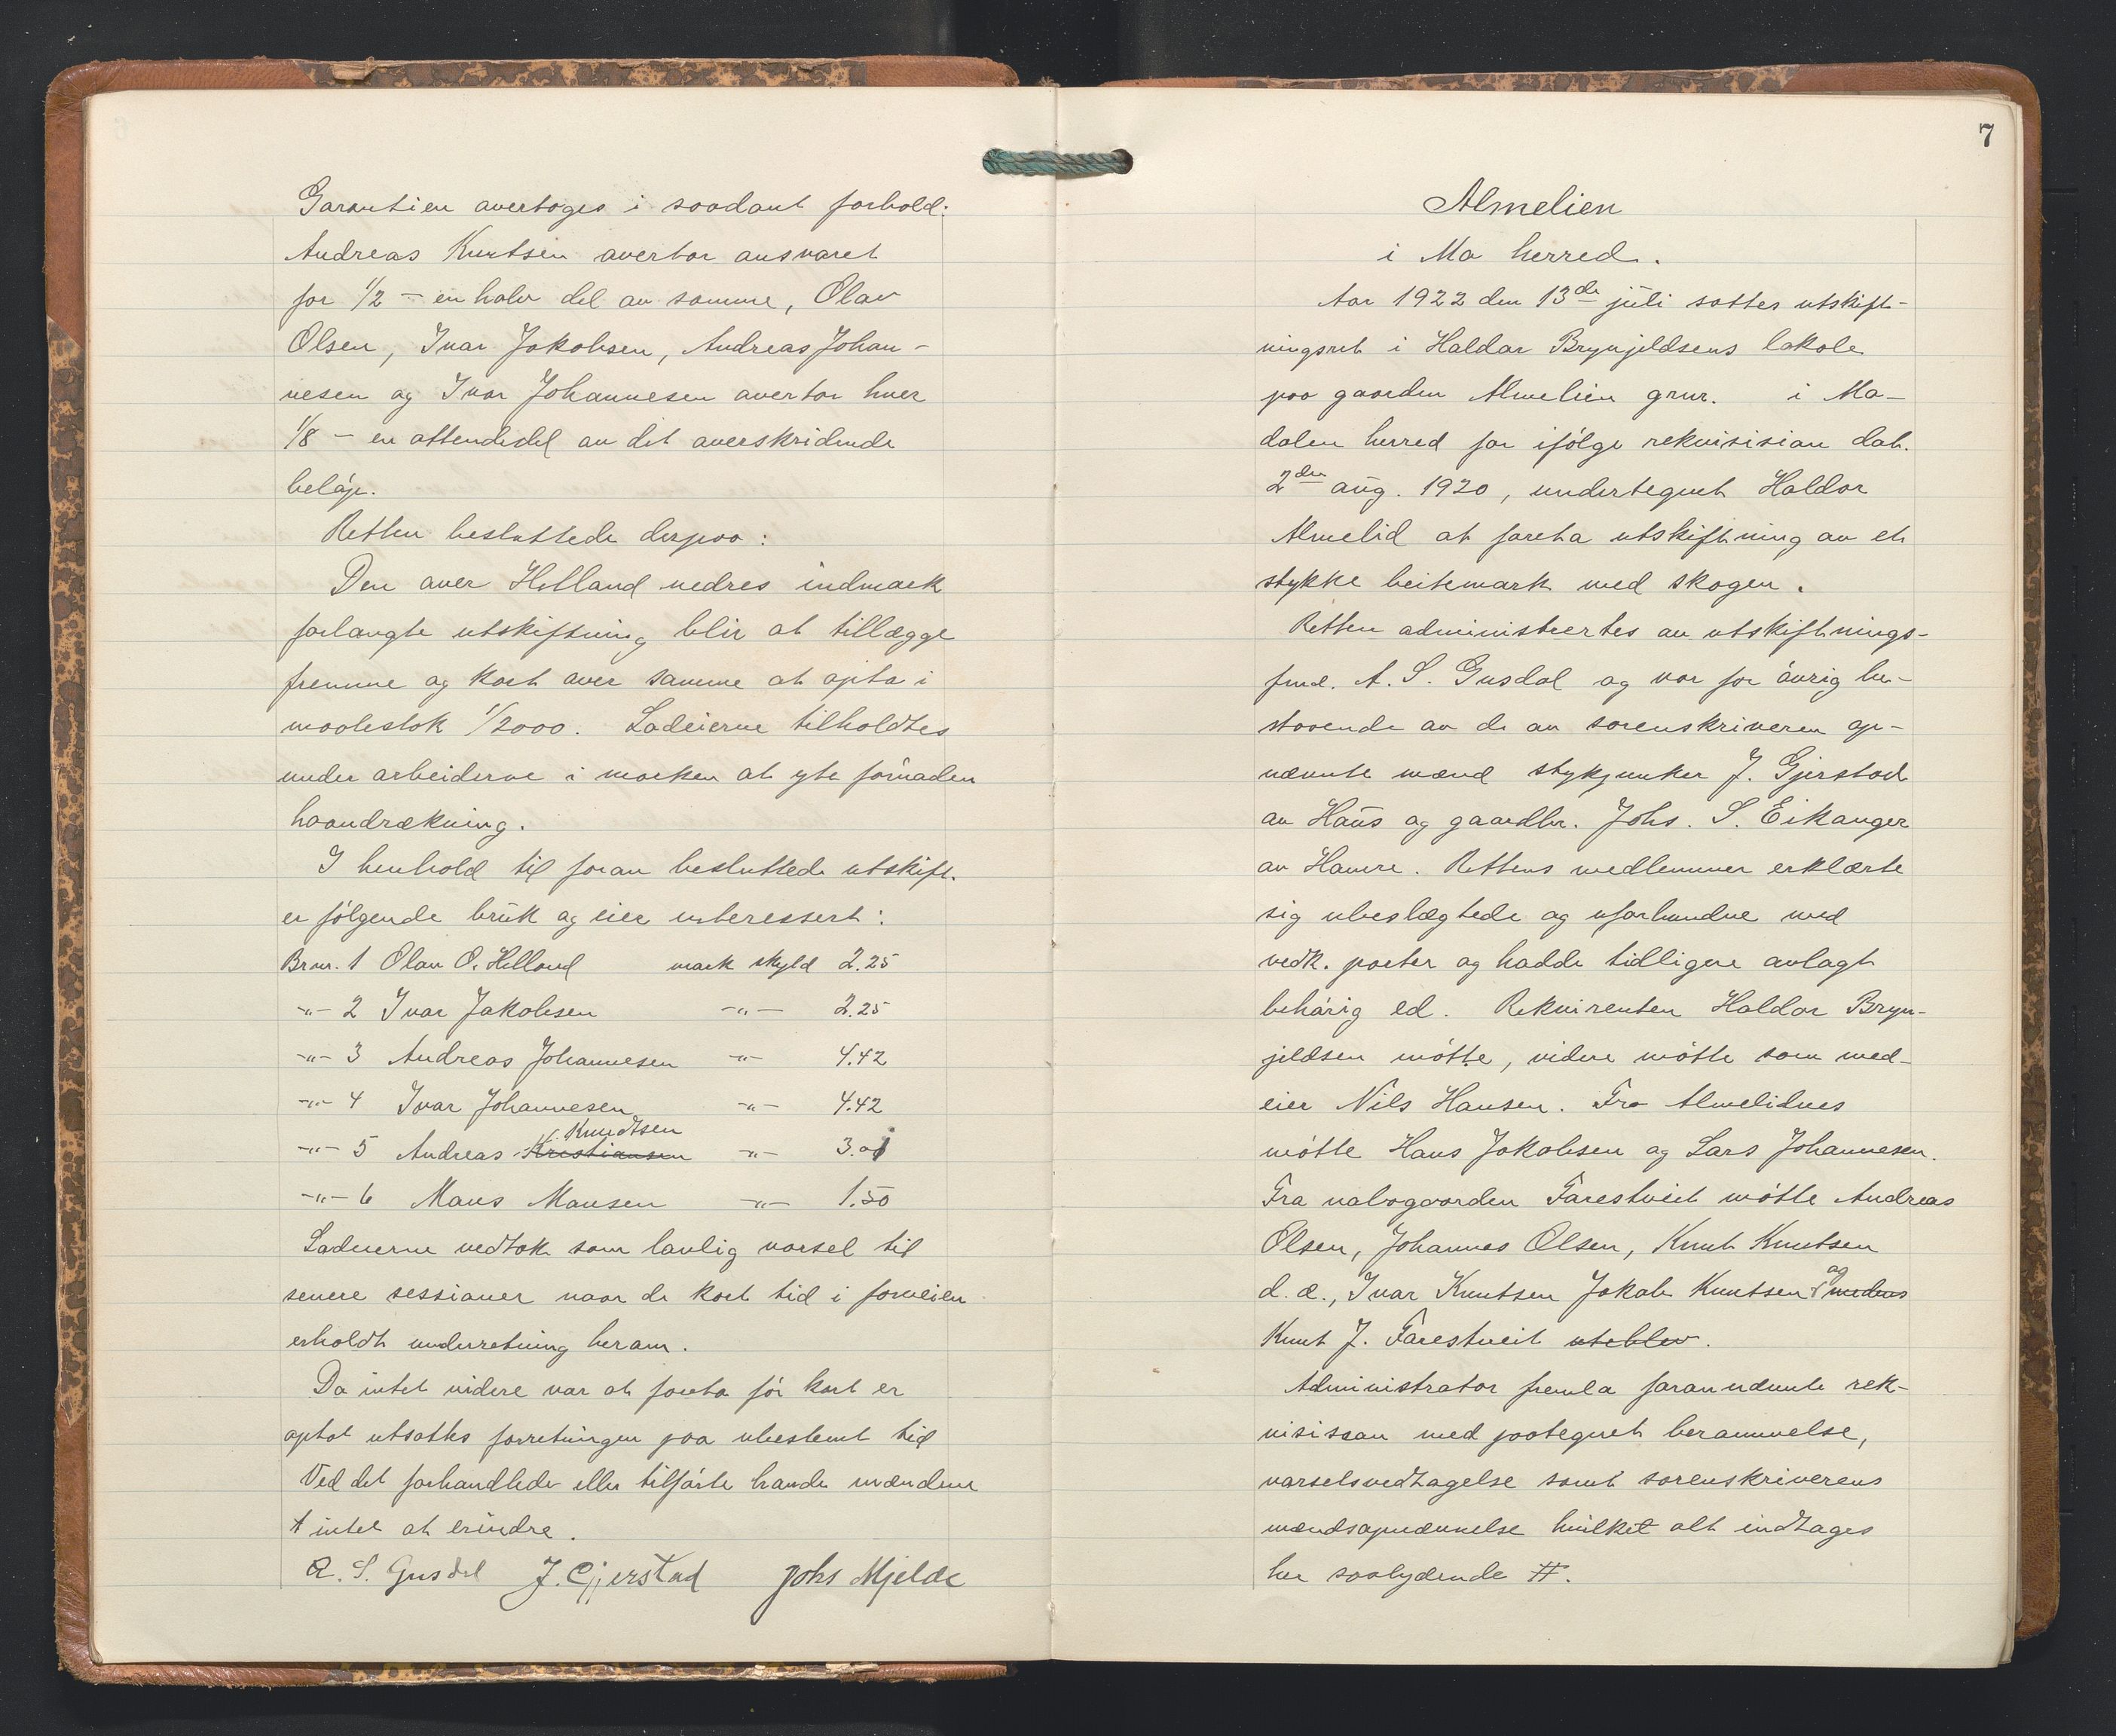 Garantien overtoges i saadant forhold:
Andreas Knutsen overtar ansvaret
for 1/2 - en halv del av samme, Olav
Olsen, Ivar Jakobsen, Andreas Johan-
nesen og Ivar Johannesen overtar hver
1/8 - en attendedel av det overskridende
beløp.
Retten besluttede derpaa:
Den over Helland nedres indmark
forlangte utskiftning blir at tillægge
fremme og kart over samme at opta i
maalestok 1/2000. Lodeierne tilholdtes
under arbeiderne i marken at yte fornøden
haandrækning.
I henhold til foran besluttede utskift.
er følgende bruk og eier interessert:
Brnr. 1 Olav O. Helland mark skyld 2.25
-"- 2 Ivar Jakobsen -"- 2.25
-"- 3 Andreas Johannesen -"- 4.42
-"- 4 Ivar Johannesen -"- 4.42
Knudtsen
-"- 5 Andreas Kristiansen -"- 3.01
-"- 6 Mans Mansen -"- 1.50
Lodeierne vedtok som lovlig varsel til
senere sessioner naar de kort tid i forveien
erholdt underretning herom.
Da intet videre var at foreta før kart er
optat utsattes forretningen paa ubestemt tid
Ved det forhandlede eller tilførte havde mændene
intet at erindre.
A. S. Gusdal J. Gjerstad Johs Mjelde
7
Almelien
i Mo herred.
Aar 1922 den 13de juli sattes utskift-
ningsret i Haldor Brynjeldsens lokale
paa gaarden Almelien grnr. i Mo-
dalen herred for ifølge rekvisision dat.
2den aug. 1920, undertegnet Haldor
Almelid at foreta utskiftning av et
stykke beitemark med skogen.
Retten administrertes av utskiftnings-
fmd. A. S. Gusdal og var for øvrig be-
staaende av de av sorenskriveren op-
nævnte mænd stykjunker J. Gjerstad
av Haus og gaardbr. Johs. S. Eikanger
av Hamre. Rettens medlemmer erklærte
sig ubeslægtede og uforbundne med
vedk. parter og hadde tidligere avlagt
behørig ed. Rekvirenten Haldor Bryn-
jeldsen møtte, videre møtte som med-
eier Nils Hansen. Fra Almelidnes
møtte Hans Jakobsen og Lars Johannesen.
Fra nabogaarden Farestveit møtte Andreas
Olsen, Johannes Olsen, Knut Knutsen
og
d. æ., Ivar Knutsen Jakob Knutsen medens
Knut J. Farestveit uteblev.
Administrator fremla forannævnte rek-
visision med paategnet berammelse,
varselsvedtagelse samt sorenskriverens
mændsopnævnelse hvilket alt indtages
her saalydende #.